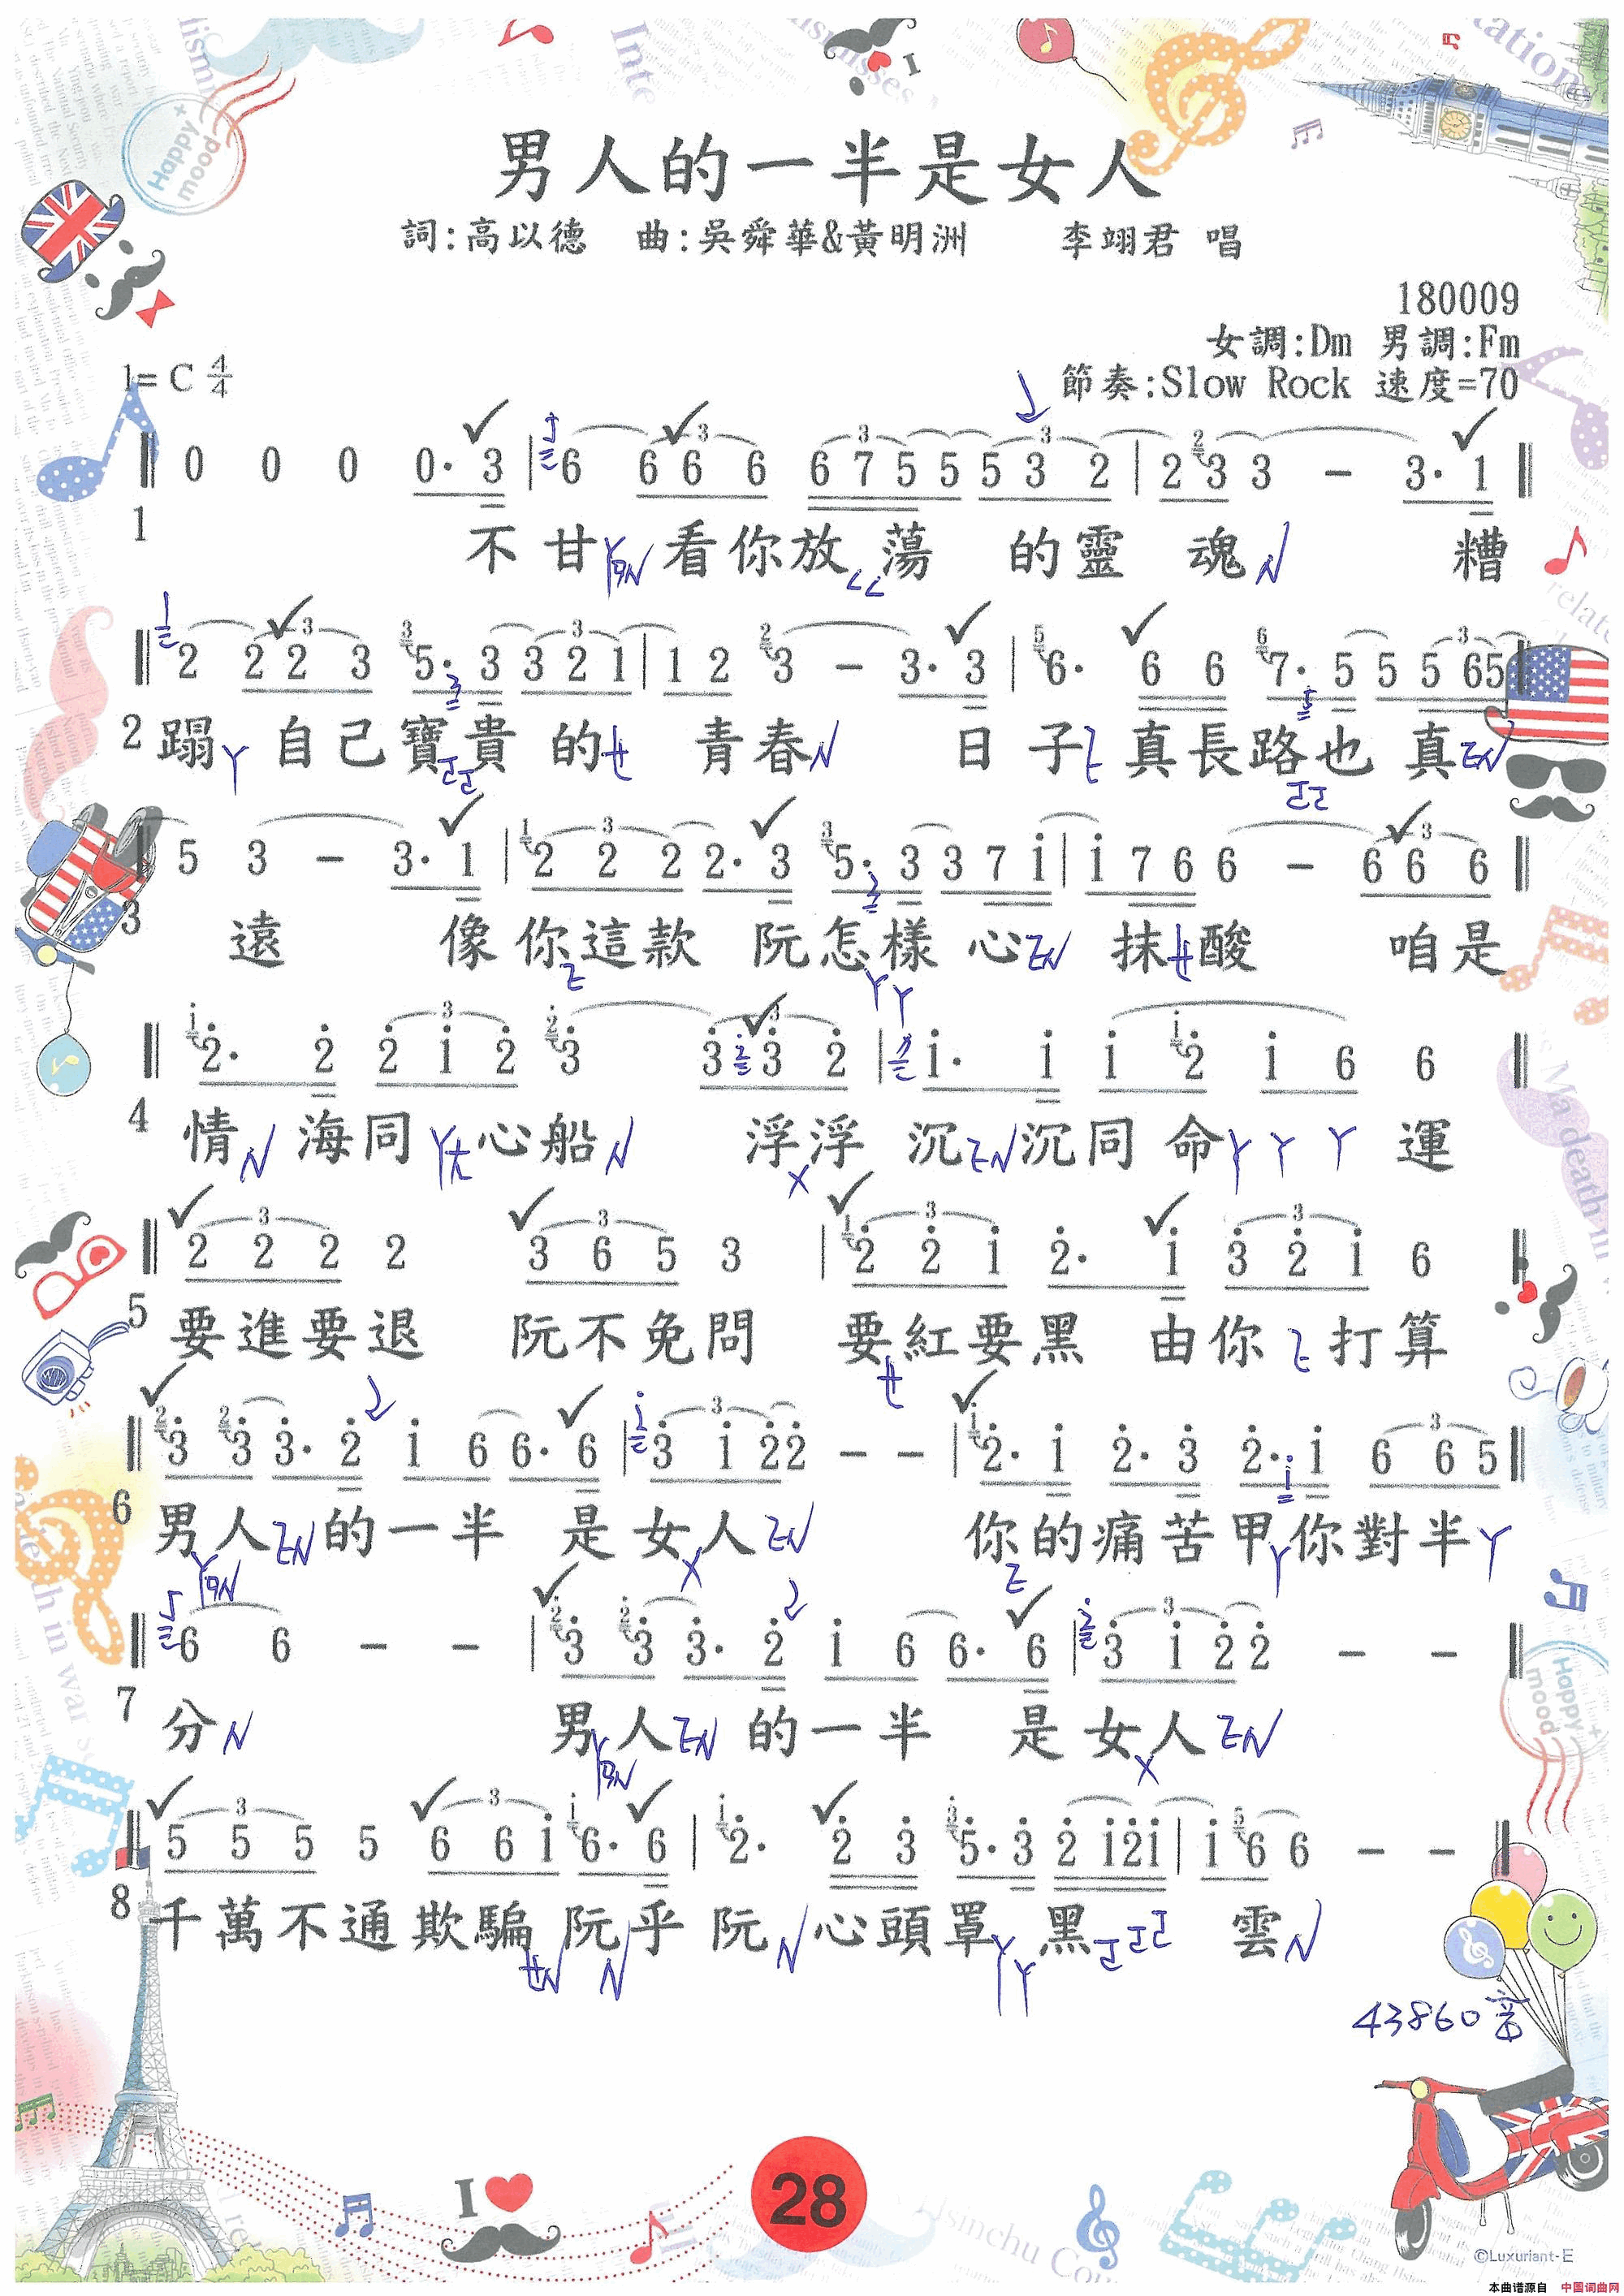 男人的一半是女人
詞:高以德 曲:吳舜華&黃明洲 李翊君 唱
180009
女調:Dm 男調:Fm
1= C 4/4 節奏:Slow Rock 速度=70
0 0 0 0· 3 | 6 6 6 6 6 7 5 5 5 3 2 | 2 3 3 - 3· 1
1 不甘看你放蕩 的靈 魂 糟
2 2 2 3 5· 3 3 2 1 | 1 2 3 - 3· 3 | 6· 6 6 7· 5 5 5 65
2 蹋 自己寶貴 的 青春 日 子 真長路也 真
5 3 - 3· 1 | 2 2 2 2· 3 5· 3 3 7 i | i 7 6 6 - 6 6 6
3 遠 像你這款 阮怎樣 心 抹酸 咱是
2· 2 2 i 2 3 3 3 2 | i· i i 2 i 6 6
4 情 海同 心船 浮浮 沉 沉同 命 運
2 2 2 2 3 6 5 3 | 2 2 i 2· i 3 2 i 6
5 要進要退 阮不免問 要紅要黑 由你 打算
3 3 3· 2 i 6 6· 6 | 3 i 2 2 - - | 2· i 2· 3 2· i 6 6 5
6 男人 的一半 是女人 你的痛苦甲你對半
6 6 - - | 3 3 3· 2 i 6 6· 6 | 3 i 2 2 - -
7 分 男人 的一半 是女人
5 5 5 5 6 6 i 6· 6 | 2· 2 3 5· 3 2 i2i | i 6 6 - -
8 千萬不通欺騙 阮乎 阮 心頭罩 黑 雲
43860音
Happy + mood
Happy + mood
I
I
28
Hsinchu Cou
©Luxuriant-E
本曲谱源自 中国词曲网